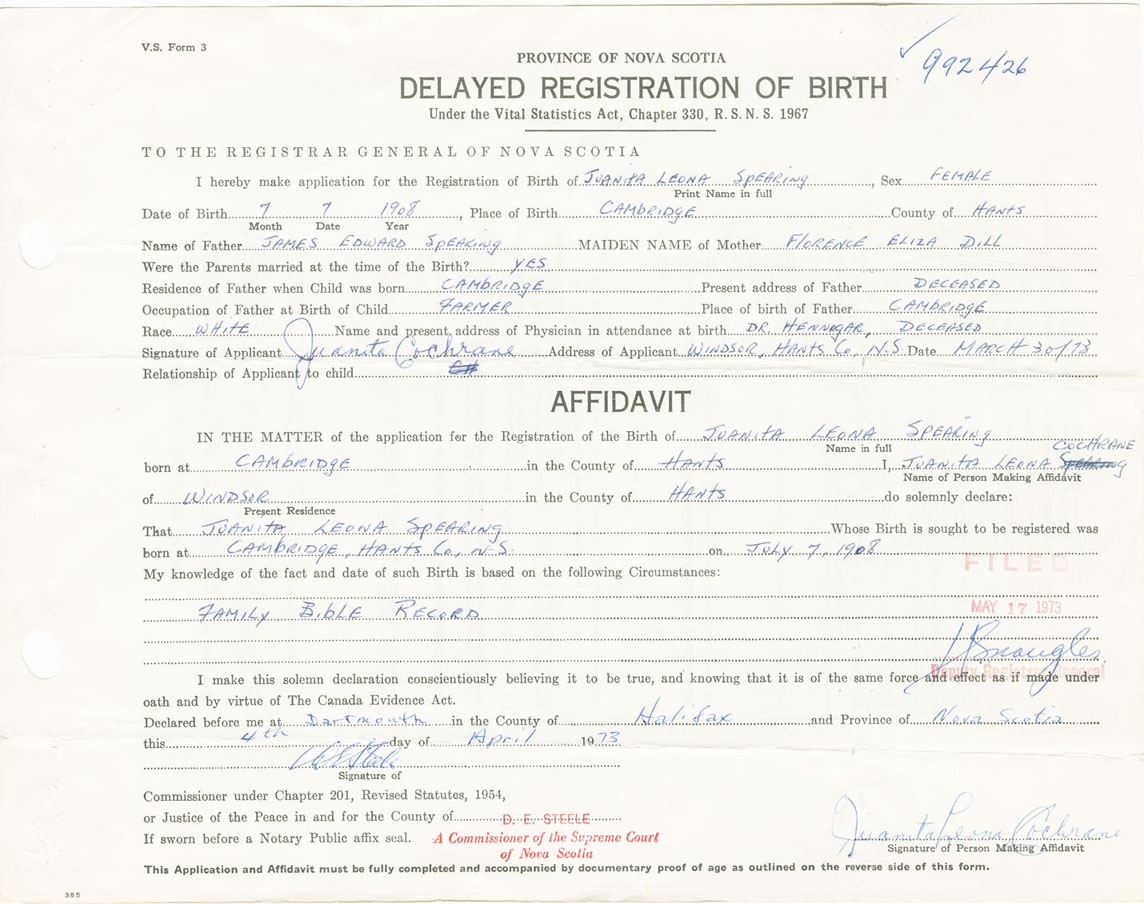 V.S. Form 3
992426
PROVINCE OF NOVA SCOTIA
DELAYED REGISTRATION OF BIRTH
Under the Vital Statistics Act, Chapter 330, R. S. N. S. 1967
TO THE REGISTRAR GENERAL OF NOVA SCOTIA
I hereby make application for the Registration of Birth of JUANITA LEONA SPEARING, Sex FEMALE
Print Name in full
Date of Birth 7 7 1908, Place of Birth CAMBRIDGE County of HANTS
Month Date Year
Name of Father JAMES EDWARD SPEARING MAIDEN NAME of Mother FLORENCE ELIZA DILL
Were the Parents married at the time of the Birth? YES
Residence of Father when Child was born CAMBRIDGE Present address of Father DECEASED
Occupation of Father at Birth of Child FARMER Place of birth of Father CAMBRIDGE
Race WHITE Name and present address of Physician in attendance at birth DR. HENNAGAR, DECEASED
Signature of Applicant Juanita Cochrane Address of Applicant WINDSOR, HANTS Co, N.S. Date MARCH 30/73
Relationship of Applicant to child
AFFIDAVIT
IN THE MATTER of the application for the Registration of the Birth of JUANITA LEONA SPEARING
Name in full COCHRANE
born at CAMBRIDGE in the County of HANTS I, JUANITA LEONA SPEARING
Name of Person Making Affidavit
of WINDSOR in the County of HANTS do solemnly declare:
Present Residence
That JUANITA LEONA SPEARING Whose Birth is sought to be registered was
born at CAMBRIDGE, HANTS Co, N.S. on JULY 7, 1908
My knowledge of the fact and date of such Birth is based on the following Circumstances:
FILED
FAMILY BIBLE RECORD
MAY 17 1973
Deputy Registrar General
I make this solemn declaration conscientiously believing it to be true, and knowing that it is of the same force and effect as if made under
oath and by virtue of The Canada Evidence Act.
Declared before me at Dartmouth in the County of Halifax and Province of Nova Scotia
this 4th day of April 1973
Signature of
Commissioner under Chapter 201, Revised Statutes, 1954,
or Justice of the Peace in and for the County of D. E. STEELE
If sworn before a Notary Public affix seal. A Commissioner of the Supreme Court
of Nova Scotia
Juanita Leona Cochrane
Signature of Person Making Affidavit
This Application and Affidavit must be fully completed and accompanied by documentary proof of age as outlined on the reverse side of this form.
365